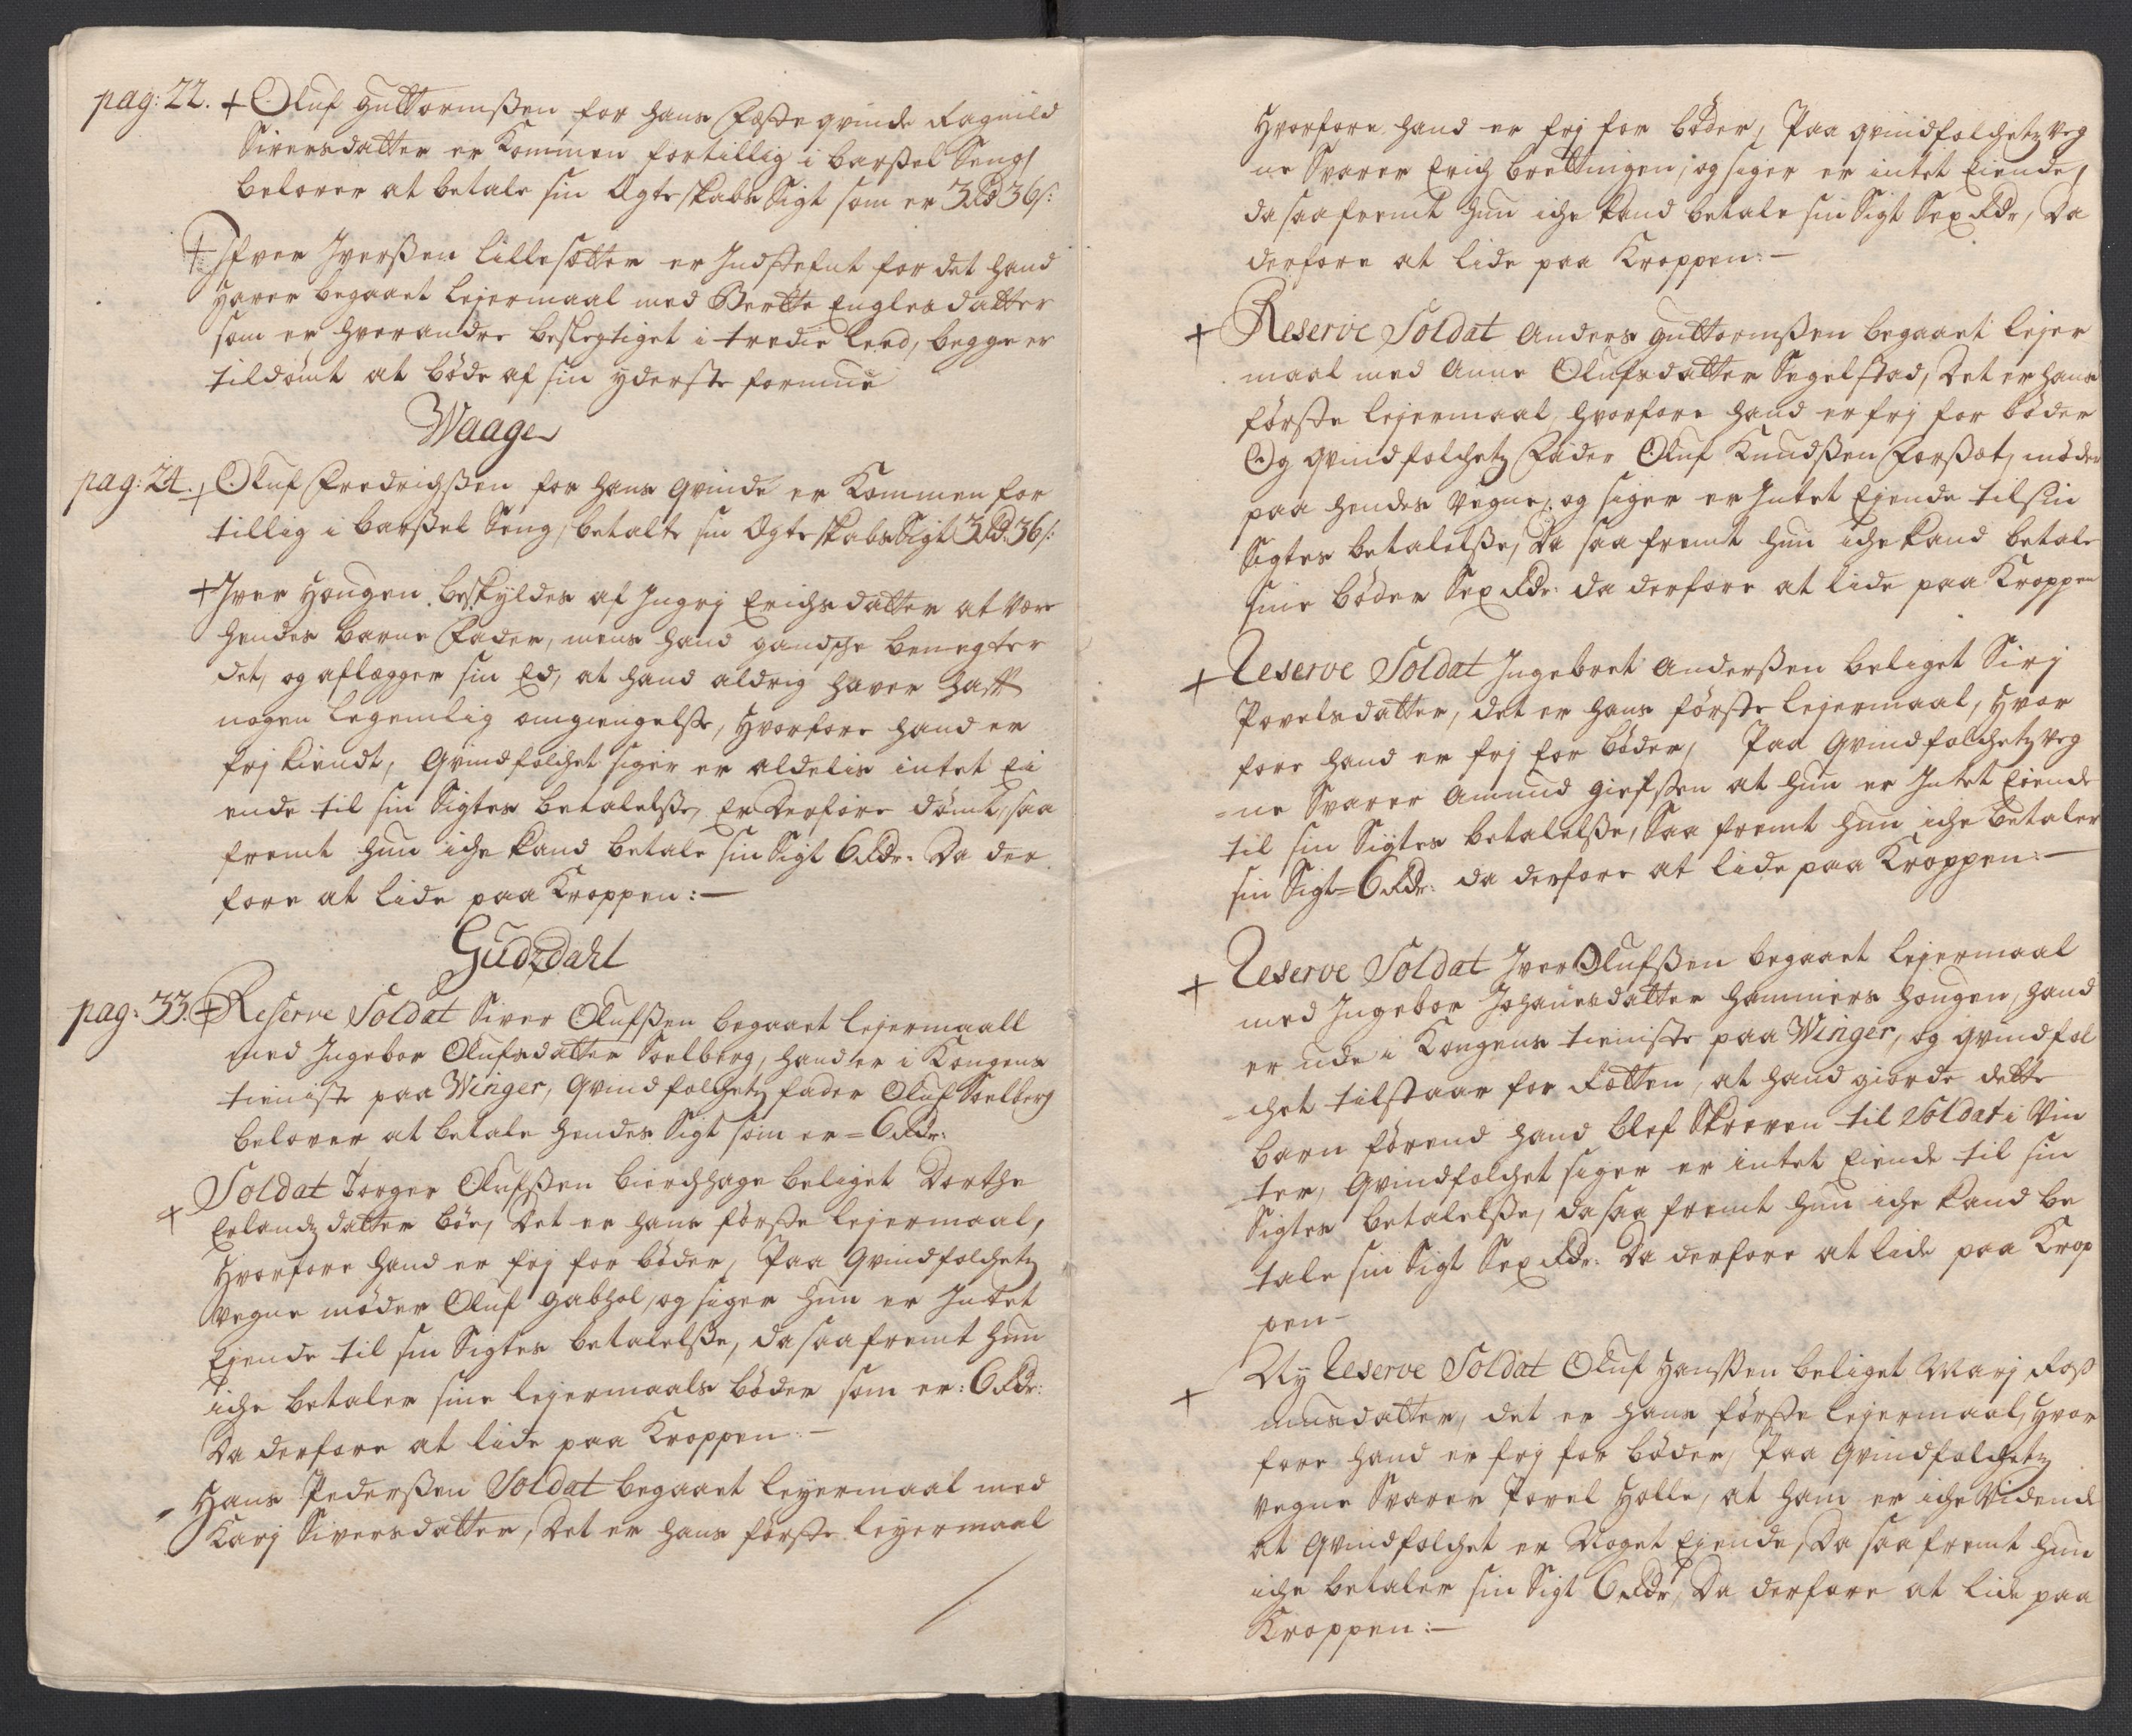 pag: 22. + Oluf Guttormßen for hans Fæste qvinde Ragnild
Siversdatter er Kommen fortillig i barßel Seng,
belover at betale sin Ægteskabs Sigt som er 3 Rd 36 s:
+ Ifver Iverßen Lillesætter er Indstefnt for det hand
haver begaaet lejermaal med Berette Englesdatter
som er hverandre beslegtiget i tredie leed, begge er
tildömt at böde af sin yderste formue
Waage
pag: 24. + Oluf Fredrichßen for hans qvinde er Kommen for
tillig i barßel Seng, betalte sin Ægteskabs Sigt 3 Rd. 36 s:
+ Iver Hougen beskyldes af Ingrj Erichsdatter at være
hendes barne Fader, mens hand gandsche benegter
det, og aflægger sin Eed, at hand aldrig haver hafft
nogen legemlig omgiengelse, hvorfore hand er
frj kiendt, Qvindfolchet siger er aldelis intet Ei
ende til sin Sigtes betalelße, Er derfore dömt, saa
fremt hun iche kand betale sin Sigt 6 Rdr: da der
fore at lide paa Kroppen: —
Gudzdahl
pag: 33. + Reserve Soldat Siver Olufßen begaaet lejermaall
med Ingebor Olufsdatter Soelberg, hand er i Kongens
tieniste paa Winger, Qvindfolchetz fader Oluf Soelberg
belover at betale hendes Sigt som er = 6 Rdr:
+ Soldat Torger Olufßen bierchhage beliget Dorthe
Erlandzdatter böe, Det er hans förste lejermaal,
hvorfore hand er frj for böder, Paa Qvindfolchetz
vegne möder Oluf Gabhol, og siger hun er Intet
Ejende til sin Sigtes betalelße, da saafremt hun
iche betaler sine lejermaals böder som er: 6 Rdr:
Da derfore at lide paa Kroppen: —
Hans Pederßen Soldat begaaet leyermaal med
Karj Siversdatter, Det er hans förste leyermaal
hvorfore hand er frj for böder, Paa qvindfolchetz veg
ne Svarer Erich brettingen, og siger er intet Eiende,
da saafremt hun iche kand betale sin Sigt Sex Rdr, Da
derfore at lide paa Kroppen: —
+ Reserve Soldat Anders Guttormßen begaaet lejer
maal med Anne Olufsdatter Segelstad, Det er hans
förste lejermaal, hvorfore hand er frj for böder
Og Qvindfolchetz Fader Oluf Knudßen Forßæt, möder
paa hendes vegne, og siger er Intet Ejende til sin
Sigtes betalelße, Da saa fremt hun iche kand betale
sine böder Sex Rdr: da derfore at lide paa Kroppen
+ Reserve Soldat Ingebret Anderßen beliget Sirj
Povelsdatter, det er hans förste lejermaal, hvor
fore hand er frj for böder, Paa Qvindfolchetz veg
=ne Svarer Amund Giefßen at hun er Intet Ejende
til sin Sigtes betalelße, Saa fremt hun iche betaler
sin Sigt = 6 Rdr: da derfore at lide paa Kroppen: —
+ Reserve Soldat Iver Olufßen begaaet lejermaal
med Ingebor Johanesdatter Hammers Hougen, hand
er ude i Kongens tieniste paa Winger, og qvindfol
=chet tilstaar for Retten, at hand giorde dette
barn förend hand blef Skreven til Soldat i Vin
ter, Qvindfolchet siger er intet Eiende til sin
Sigtes betalelße, da saa fremt hun iche kand be
tale sin Sigt Sex Rdr: Da derfore at lide paa Krop
pen —
+ Ny Reserve Soldat Oluf Hanßen beliget Marj Raß
musdatter, det er hans förste lejermaal, hvor
fore hand er frj for böder, Paa Qvindfolchetz
vegne Svarer Povel Holle, at ham er iche Vidende
at Qvindfolchet er Noget Ejende, Da saa fremt hun
iche betaler sin Sigt 6 Rdr, Da derfore at lide paa
Kroppen: —